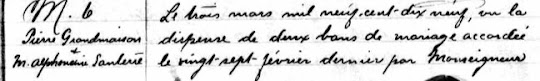 M. 6
Pierre Grandmaison
+
M. Alphonsine
Le trois mars mil neuf-cent-dix neuf, vu la
dispense de deux bans de mariage accordée
le vingt-sept février dernier par Monseigneur